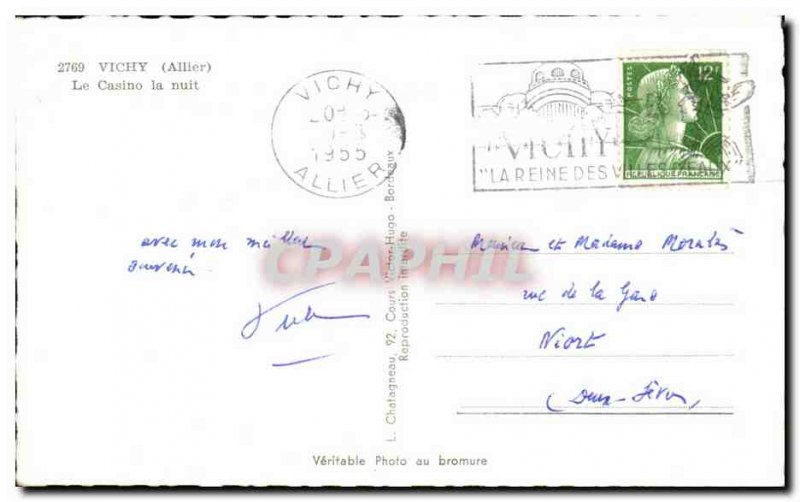 2769 VICHY (Allier)
Le Casino la nuit
VICHY
1955
ALLIER
POSTES
12F
VICHY
"LA REINE DES VILLES D'EAUX"
REPUBLIQUE FRANCAISE
avec mon meilleur
souvenir
CPAPHIL
Monsieur et Madame
rue de la Gare
Niort
(Deux-Sèvres)
L. Chatagneau, 92, Cours Victor-Hugo - Bordeaux
Reproduction interdite
Véritable Photo au bromure